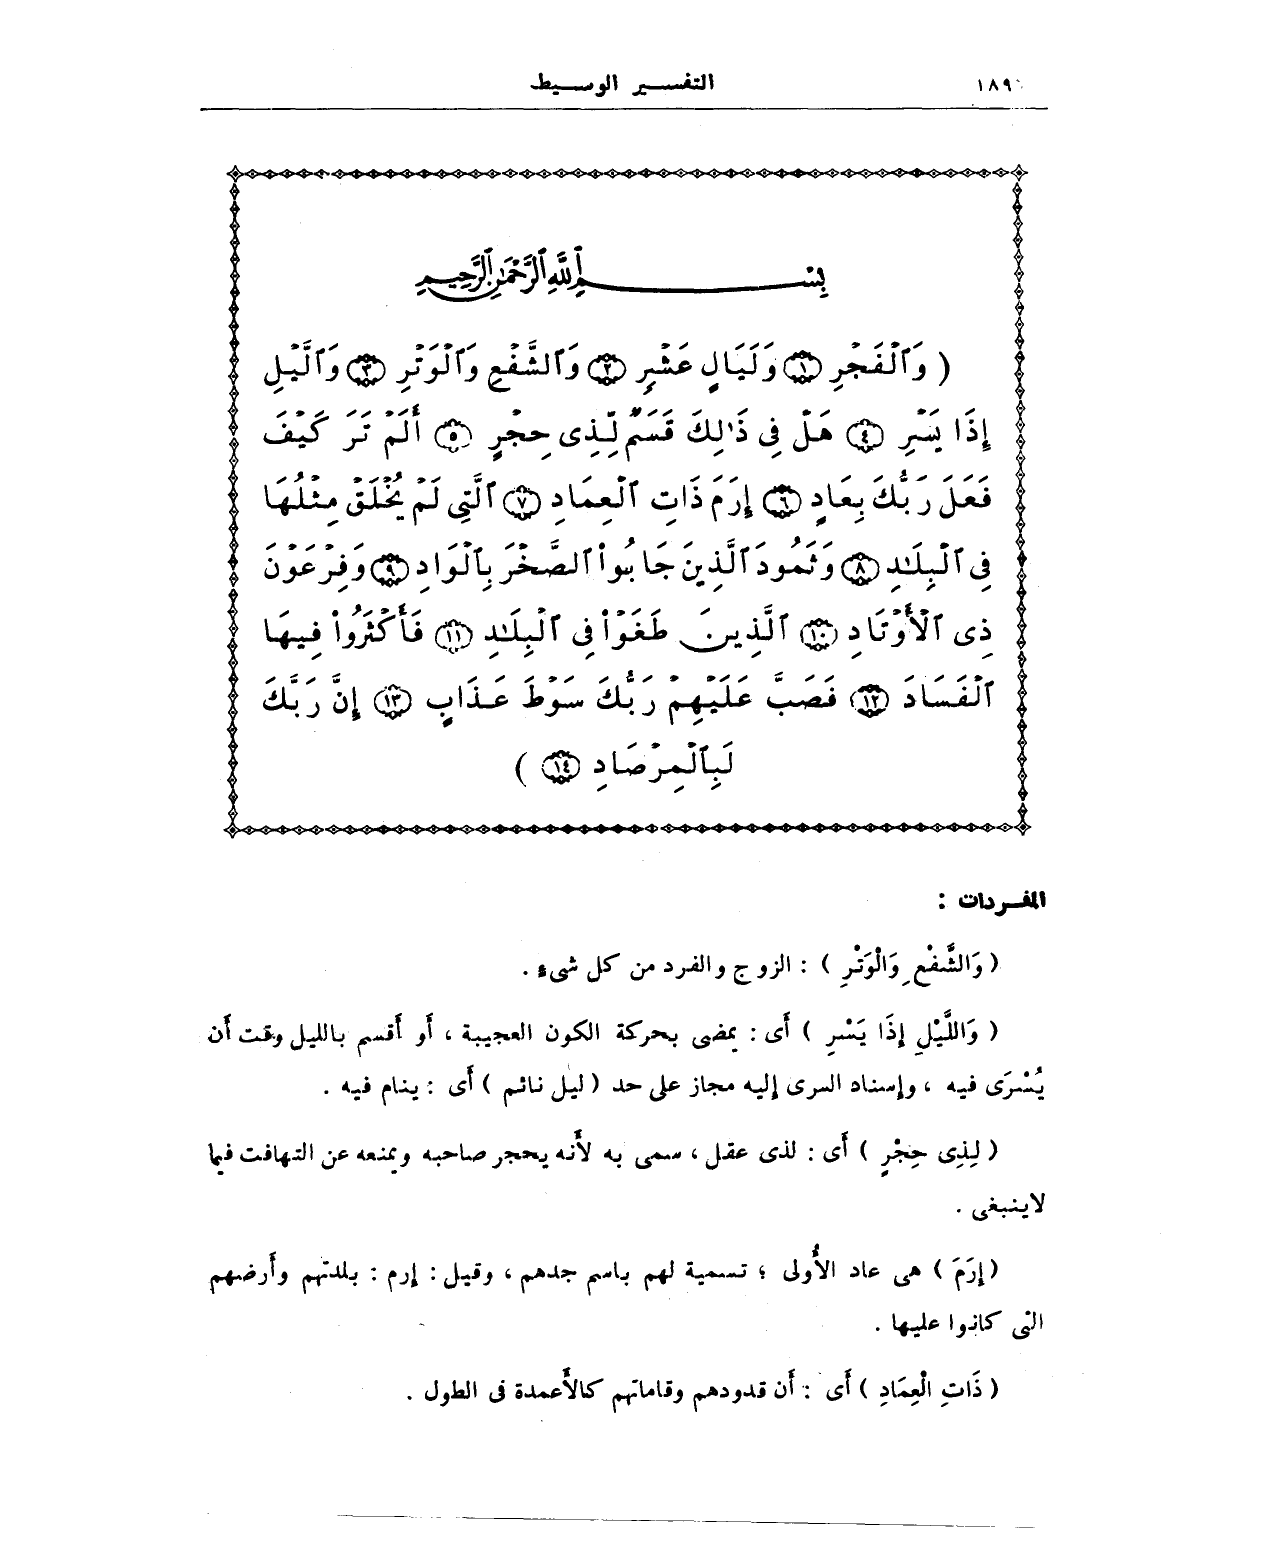 ١٨٩٠
التفسير الوسيط
بِسْمِ ٱللَّهِ ٱلرَّحْمَٰنِ ٱلرَّحِيمِ
( وَٱلْفَجْرِ ١ وَلَيَالٍ عَشْرٍ ٢ وَٱلشَّفْعِ وَٱلْوَتْرِ ٣ وَٱلَّيْلِ
إِذَا يَسْرِ ٤ هَلْ فِى ذَٰلِكَ قَسَمٌ لِّذِى حِجْرٍ ٥ أَلَمْ تَرَ كَيْفَ
فَعَلَ رَبُّكَ بِعَادٍ ٦ إِرَمَ ذَاتِ ٱلْعِمَادِ ٧ ٱلَّتِى لَمْ يُخْلَقْ مِثْلُهَا
فِى ٱلْبِلَٰدِ ٨ وَثَمُودَ ٱلَّذِينَ جَابُوا۟ ٱلصَّخْرَ بِٱلْوَادِ ٩ وَفِرْعَوْنَ
ذِى ٱلْأَوْتَادِ ١٠ ٱلَّذِينَ طَغَوْا۟ فِى ٱلْبِلَٰدِ ١١ فَأَكْثَرُوا۟ فِيهَا
ٱلْفَسَادَ ١٢ فَصَبَّ عَلَيْهِمْ رَبُّكَ سَوْطَ عَذَابٍ ١٣ إِنَّ رَبَّكَ
لَبِٱلْمِرْصَادِ ١٤ )
المفردات :
( وَالشَّفْعِ وَالْوَتْرِ ) : الزوج والفرد من كل شىء .
( وَاللَّيْلِ إِذَا يَسْرِ ) أَى : يمضى بحركة الكون العجيبة ، أَو أَقسم بالليل وقت أَن
يُسْرَى فيه ، وإسناد السرى إليه مجاز على حد ( ليل نائم ) أَى : ينام فيه .
( لِذِى حِجْرٍ ) أَى : لذى عقل ، سمى به لأَنه يحجر صاحبه ويمنعه عن التهافت فيما
لاينبغى .
( إِرَمَ ) هى عاد الأُولى ؛ تسمية لهم باسم جدهم ، وقيل : إرم : بلدتهم وأَرضهم
التى كانوا عليها .
( ذَاتِ الْعِمَادِ ) أَى : أَن قدودهم وقاماتهم كالأَعمدة فى الطول .